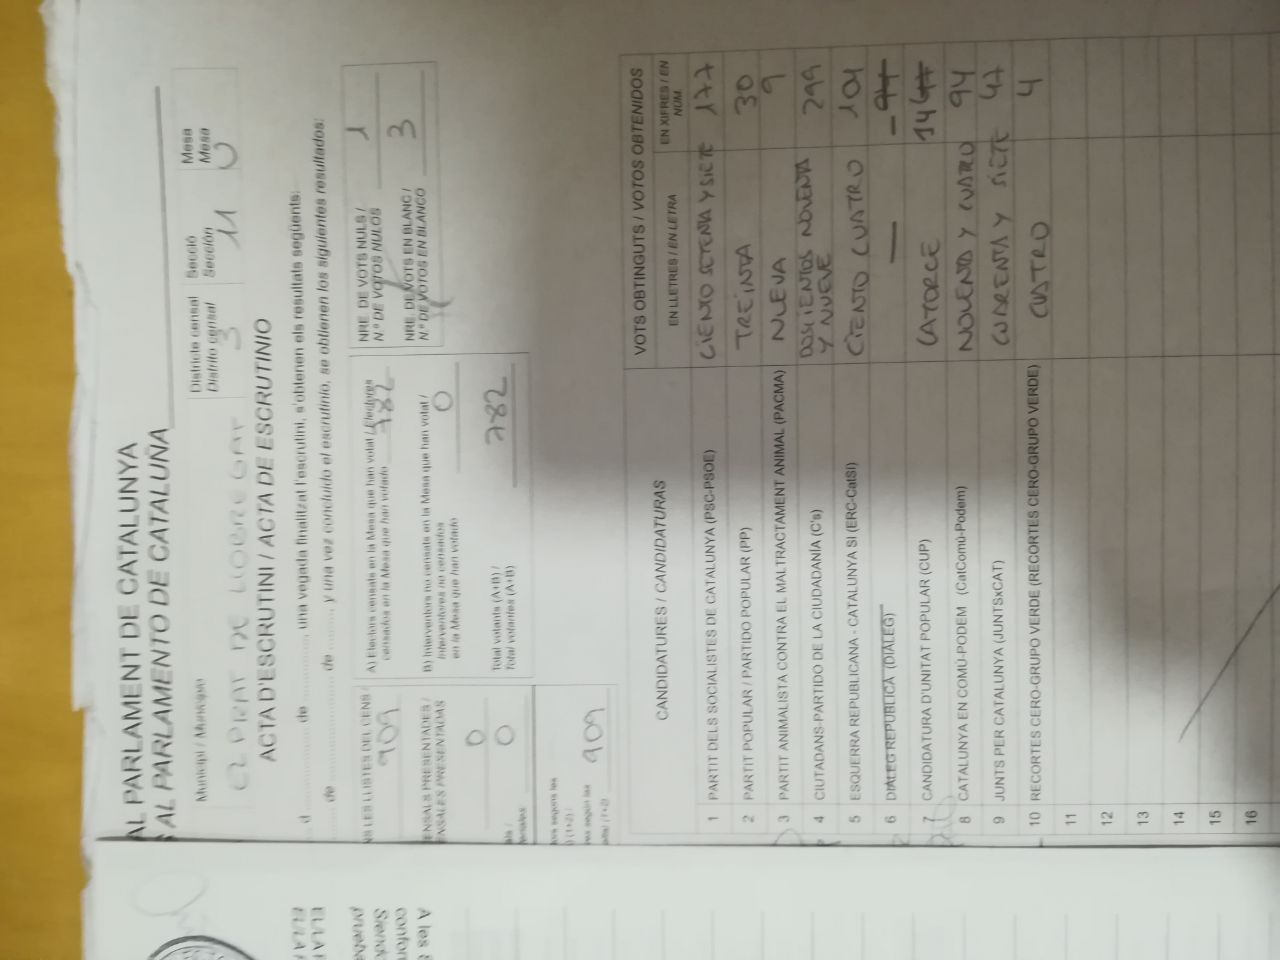 AL PARLAMENT DE CATALUNYA
AL PARLAMENTO DE CATALUÑA
Municipi / Municipio
EL PRAT DE LLOBREGAT
Districte censal
Distrito censal
3
Secció
Sección
11
Mesa
Mesa
U
ACTA D'ESCRUTINI / ACTA DE ESCRUTINIO
d ............ de ............ una vegada finalitzat l'escrutini, s'obtenen els resultats següents:
de ............ de ........ y una vez concluido el escrutinio, se obtienen los siguientes resultados:
LES LLISTES DEL CENS /
909
ENSALS PRESENTADES /
NSALES PRESENTADAS
0
0
909
A) Electors censats en la Mesa que han votat / Electores
censados en la Mesa que han votado
782
B) Interventors no censats en la Mesa que han votat /
Interventores no censados
en la Mesa que han votado
0
Total votants (A+B) /
Total votantes (A+B)
782
NRE. DE VOTS NULS /
N.º DE VOTOS NULOS
1
NRE. DE VOTS EN BLANC /
N.º DE VOTOS EN BLANCO
3
CANDIDATURES / CANDIDATURAS
VOTS OBTINGUTS / VOTOS OBTENIDOS
EN LLETRES / EN LETRA
EN XIFRES / EN NÚM.
1 PARTIT DELS SOCIALISTES DE CATALUNYA (PSC-PSOE) CIENTO SETENTA Y SIETE 177
2 PARTIT POPULAR / PARTIDO POPULAR (PP) TREINTA 30
3 PARTIT ANIMALISTA CONTRA EL MALTRACTAMENT ANIMAL (PACMA) NUEVA 9
4 CIUTADANS-PARTIDO DE LA CIUDADANÍA (C's) DOSCIENTOS NOVENTA Y NUEVE 299
5 ESQUERRA REPUBLICANA - CATALUNYA SÍ (ERC-CatSí) CIENTO CUATRO 104
6 DIÀLEG REPÚBLICA (DIÀLEG) — —
7 CANDIDATURA D'UNITAT POPULAR (CUP) CATORCE 14
8 CATALUNYA EN COMÚ-PODEM (CatComú-Podem) NOVENTA Y CUATRO 94
9 JUNTS PER CATALUNYA (JUNTSxCAT) CUARENTA Y SIETE 47
10 RECORTES CERO-GRUPO VERDE (RECORTES CERO-GRUPO VERDE) CUATRO 4
11
12
13
14
15
16
A les